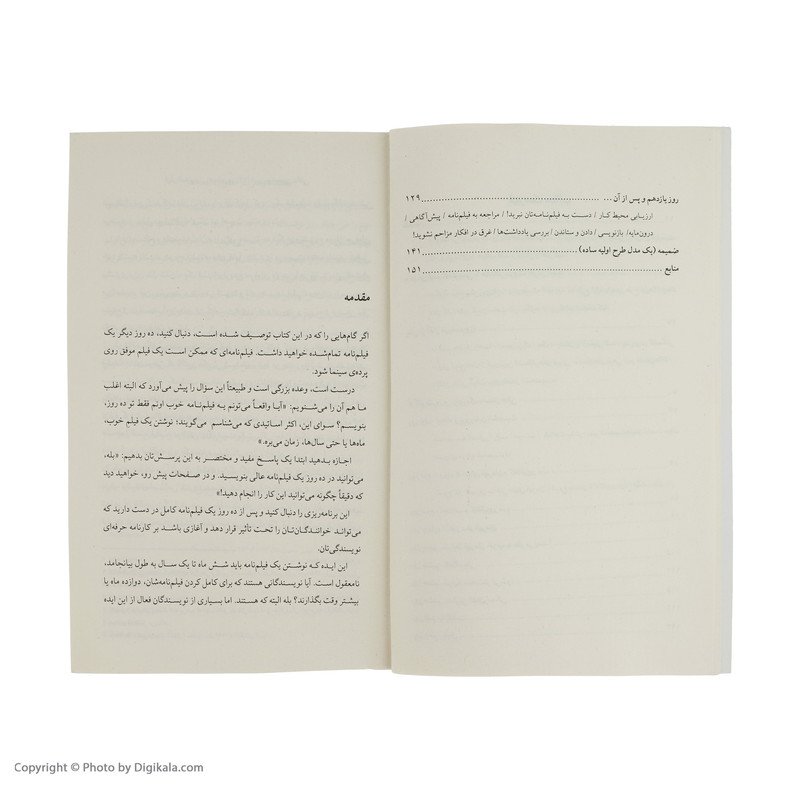 روز یازدهم و پس از آن ... ۱۲۹
ارزیابی محیط کار / دست به فیلم‌نامه‌تان نبرید! / مراجعه به فیلم‌نامه / پیش‌آگاهی /
درون‌مایه/ بازنویسی / دادن و ستاندن / بررسی یادداشت‌ها / غرق در افکار مزاحم نشوید!
ضمیمه (یک مدل طرح اولیه ساده) ۱۴۱
منابع ۱۵۱
مقدمه
اگر گام‌هایی را که در این کتاب توصیف شده است، دنبال کنید، ده روز دیگر یک
فیلم‌نامه تمام‌شده خواهید داشت. فیلم‌نامه‌ای که ممکن است یک فیلم موفق روی
پرده‌ی سینما شود.
درست است، وعده بزرگی است و طبیعتاً این سؤال را پیش می‌آورد که البته اغلب
ما هم آن را می‌شنویم: «آیا واقعاً می‌تونم یه فیلم‌نامه خوب اونم فقط تو ده روز،
بنویسم؟ سوای این، اکثر اساتیدی که می‌شناسم می‌گویند؛ نوشتن یک فیلم خوب،
ماه‌ها یا حتی سال‌ها، زمان می‌بره.»
اجازه بدهید ابتدا یک پاسخ مفید و مختصر به این پرسش‌تان بدهیم: «بله،
می‌توانید در ده روز یک فیلم‌نامه عالی بنویسید. و در صفحات پیش رو، خواهید دید
که دقیقاً چگونه می‌توانید این کار را انجام دهید!»
این برنامه‌ریزی را دنبال کنید و پس از ده روز یک فیلم‌نامه کامل در دست دارید که
می‌تواند خوانندگان‌تان را تحت تأثیر قرار دهد و آغازی باشد بر کارنامه حرفه‌ای
نویسندگی‌تان.
این ایده که نوشتن یک فیلم‌نامه باید شش ماه تا یک سال به طول بیانجامد،
نامعقول است. آیا نویسندگانی هستند که برای کامل کردن فیلم‌نامه‌شان، دوازده ماه یا
بیشتر وقت بگذارند؟ بله البته که هستند. اما بسیاری از نویسندگان فعال از این ایده
Copyright © Photo by Digikala.com